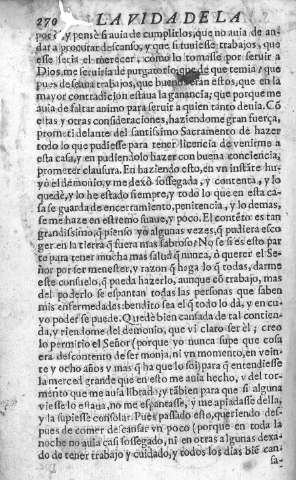 270 LA VIDA DE LA
y pensè si auia de cumplirlos, que no auia de an-
dar a procurar descanso, y que si tuuiesse trabajos, que
esse seria el merecer, como lo tomasse por seruir a
Dios, me seruiria de purgatorio, que de que temia? que
pues desseaua trabajos, que buenos eran estos, que en la
mayor contradicion estaua la ganancia; que porque me
auia de faltar animo para seruir a quien tanto deuia. Cō
estas y otras consideraciones, haziendome gran fuerça,
prometi delante del santissimo Sacramento de hazer
todo lo que pudiesse para tener licencia de venirme a
esta casa, y en pudiendolo hazer con buena conciencia,
prometer clausura. En haziendo esto, en vn instāte hu-
yò el demonio, y me dexò sossegada, y contenta, y lo
quedè, y lo he estado siempre, y todo lo que en esta ca-
sa se guarda de encerramiento, penitencia, y lo demas,
se me haze en estremo suaue, y poco. El contēto es tan
grandissimo, q̄ pienso yo algunas vezes, q̄ pudiera esco
ger en la tierra q̄ fuera mas sabroso? No se si es esto par
te para tener mucha mas salud q̄ nunca, ò querer el Se-
ñor por ser menester, y razon q̄ haga lo q̄ todas, darme
este consuelo, q̄ pueda hazerlo, aunque cō trabajo, mas
del poderlo se espantan todas las personas que saben
mis enfermedades: bendito sea el q̄ todo lo dà, y en cu-
yo poder se puede. Quedè bien cansada de tal contien-
da, y riendome del demonio, que vi claro ser el; creo
lo permitio el Señor (porque yo nunca supe que cosa
era descontento de ser monja, ni vn momento, en vein-
te y ocho años y mas q̄ ha que lo soi) para q̄ entendiesse
la merced grande que en esto me auia hecho, y del tor-
mento que me auia librado; y tābien para que si alguna
viesse lo estaua, no me espantasse, y me apiadasse della,
y la supiesse consolar. Pues passado esto, queriendo des-
pues de comer descansar vn poco (porque en toda la
noche no auia casi sossegado, ni en otras algunas dexa-
do de tener trabajo y cuidado, y todos los dias biē can-
sa-